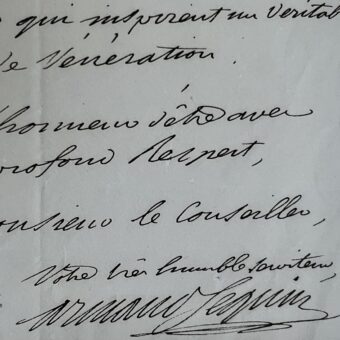 qui inspirent un veritab
de Vénération.
honneur d'être avec
profond Respect,
onsieur le Conseiller,
Votre très humble serviteur,
Armand Seguin